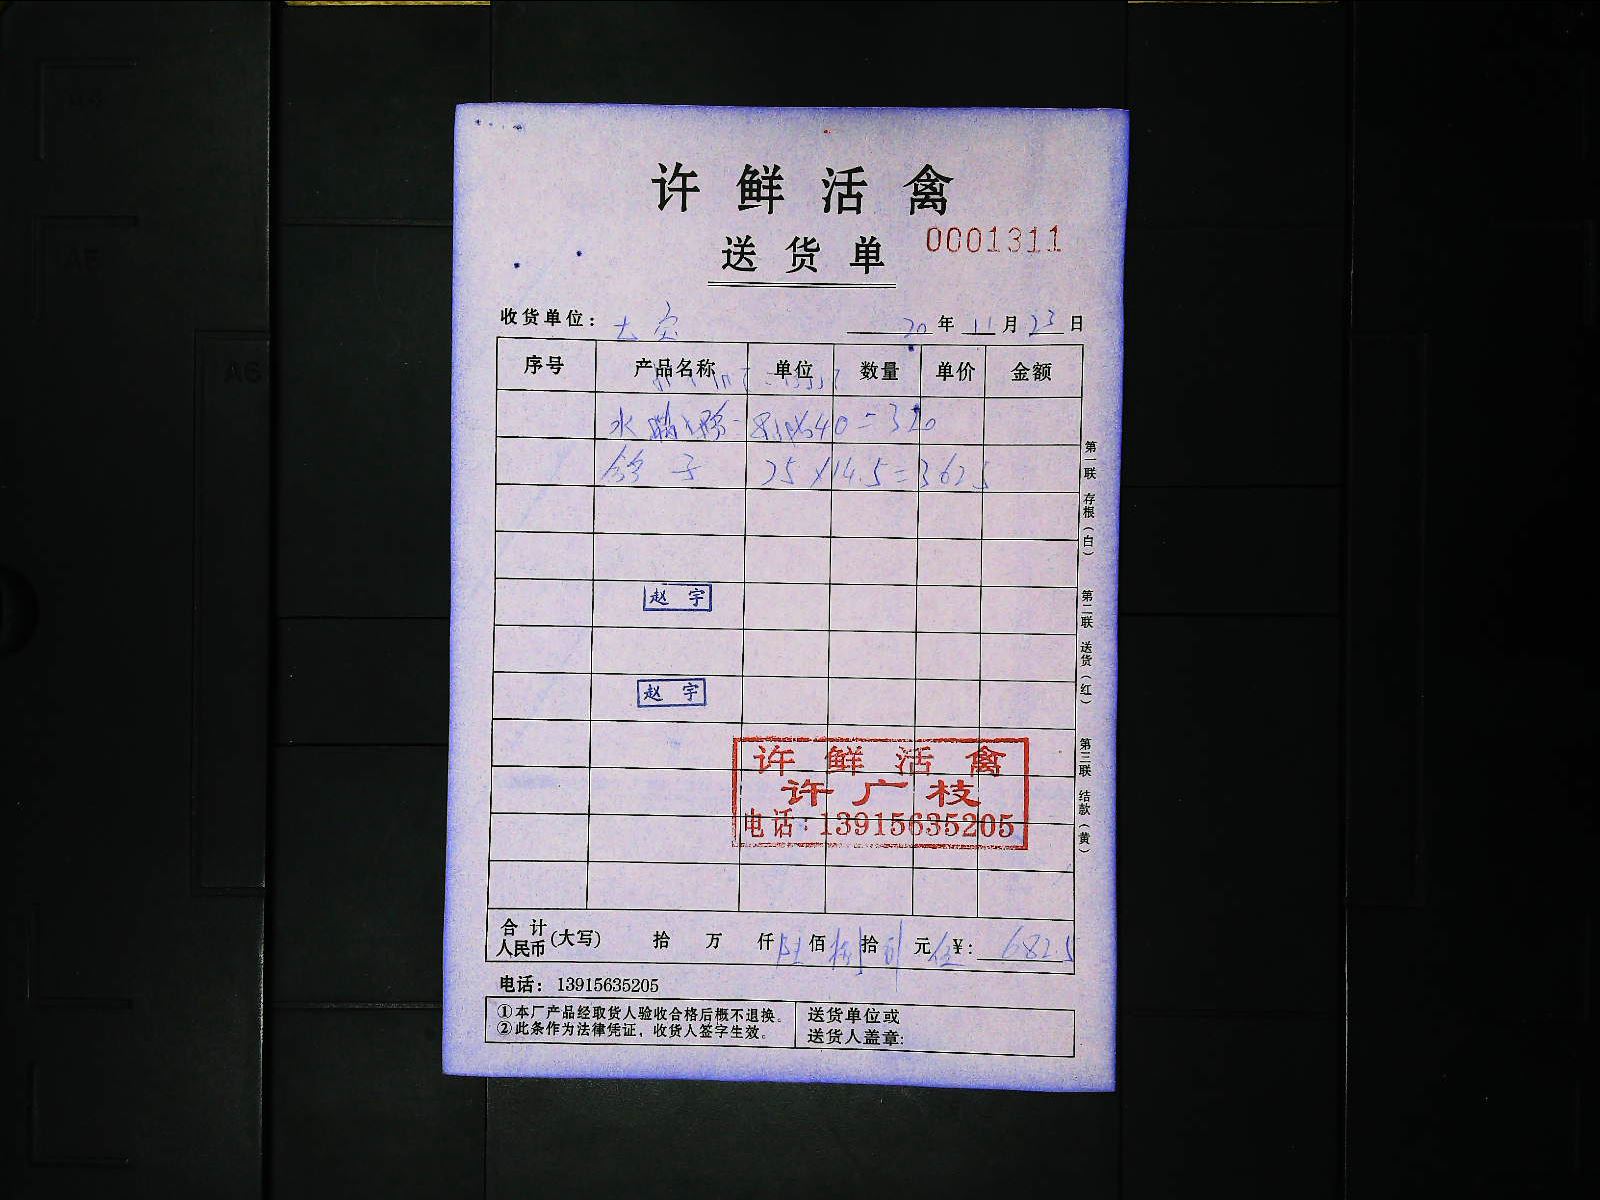 许鲜活禽
送货单 0001311
收货单位： 20年11月23日
序号 产品名称 单位 数量 单价 金额
水 40=320
鸽子 25×14.5=3625
赵宇
赵宇
许鲜活禽
许广枝
电话：13915635205
合计人民币(大写) 拾 万 仟 陆 佰 捌 拾 元 伍 ¥: 6825
电话：13915635205
①本厂产品经取货人验收合格后概不退换。
②此条作为法律凭证，收货人签字生效。
送货单位或
送货人盖章:
第一联 存根（白）
第二联 送货（红）
第三联 结款（黄）